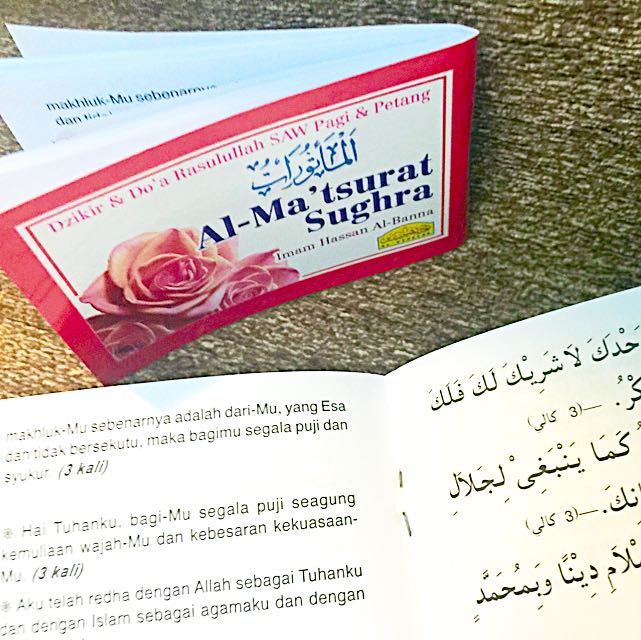 makhluk-Mu sebenarnya
dan tidak
Dzikir & Do'a Rasulullah SAW Pagi & Petang
اَلْمَأْثُوْرَاتُ
Al-Ma'tsurat
Sughra
Imam Hassan Al-Banna
makhluk-Mu sebenarnya adalah dari-Mu, yang Esa
dan tidak bersekutu, maka bagimu segala puji dan
syukur. (3 kali)
❋ Hai Tuhanku, bagi-Mu segala puji seagung
kemuliaan wajah-Mu dan kebesaran kekuasaan-
Mu. (3 kali)
❋ Aku telah redha dengan Allah sebagai Tuhanku
dan dengan Islam sebagai agamaku dan dengan
حْدَكَ لَا شَرِيْكَ لَكَ فَلَكَ
كْرُ. —(3 كالي)
كَمَا يَنْبَغِى لِجَلَالِ
انِكَ. —(3 كالي)
لَامِ دِيْنًا وَبِمُحَمَّدٍ